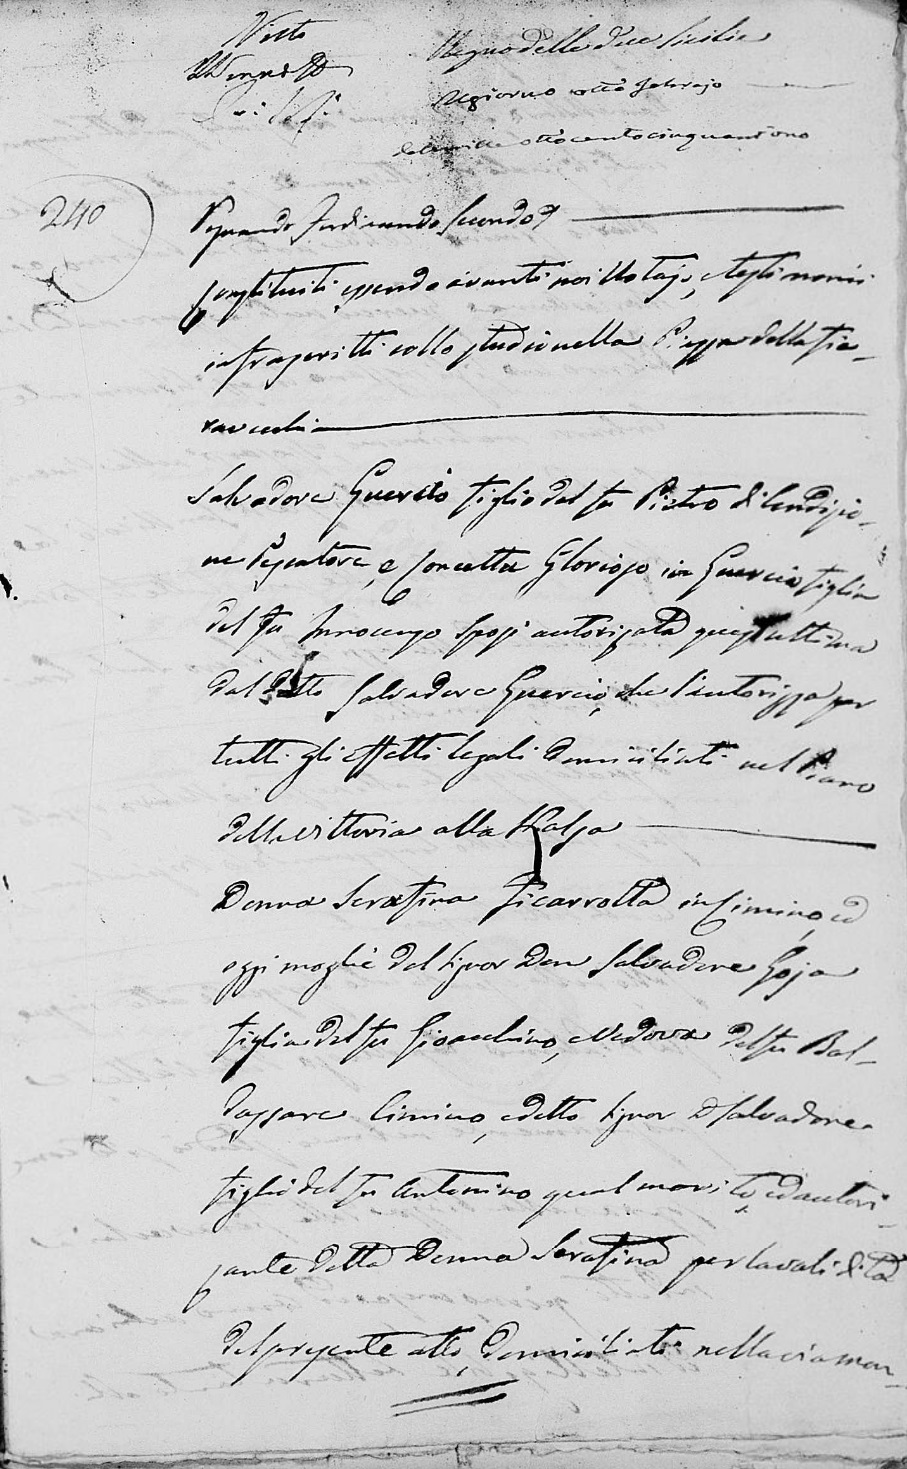 Visto
Regno delle due Sicilie
Il giorno otto Febrajo
del mille ottocentocinquantuno
240
Regnando Ferdinando Secondo
Costituiti essendo avanti noi Notajo, e testimonii
infrascritti collo studio nella Piazza della Fie-
ravecchia
Salvadore Guercio figlio del fu Pietro di Condizio-
ne Pescatore, e Concetta Glorioso in Guercio figlia
del fu Innocenzo sposi autorizzata quest'ultima
dal detto Salvadore Guercio, che l'autorizza per
tutti gli effetti legali domiciliati nel Piano
della Vittoria alla Kalsa
Donna Serafina Ficarrotta in Cimino, ed
oggi moglie del Signor Don Salvadore Goja
figlia del fu Gioacchino, e Vedova del fu Bal-
dassare Cimino, e detto Signor D. Salvadore
figlio del fu Antonino qual marito, ed autori-
zante detta Donna Serafina per la validità
del presente atto, domiciliati nella via